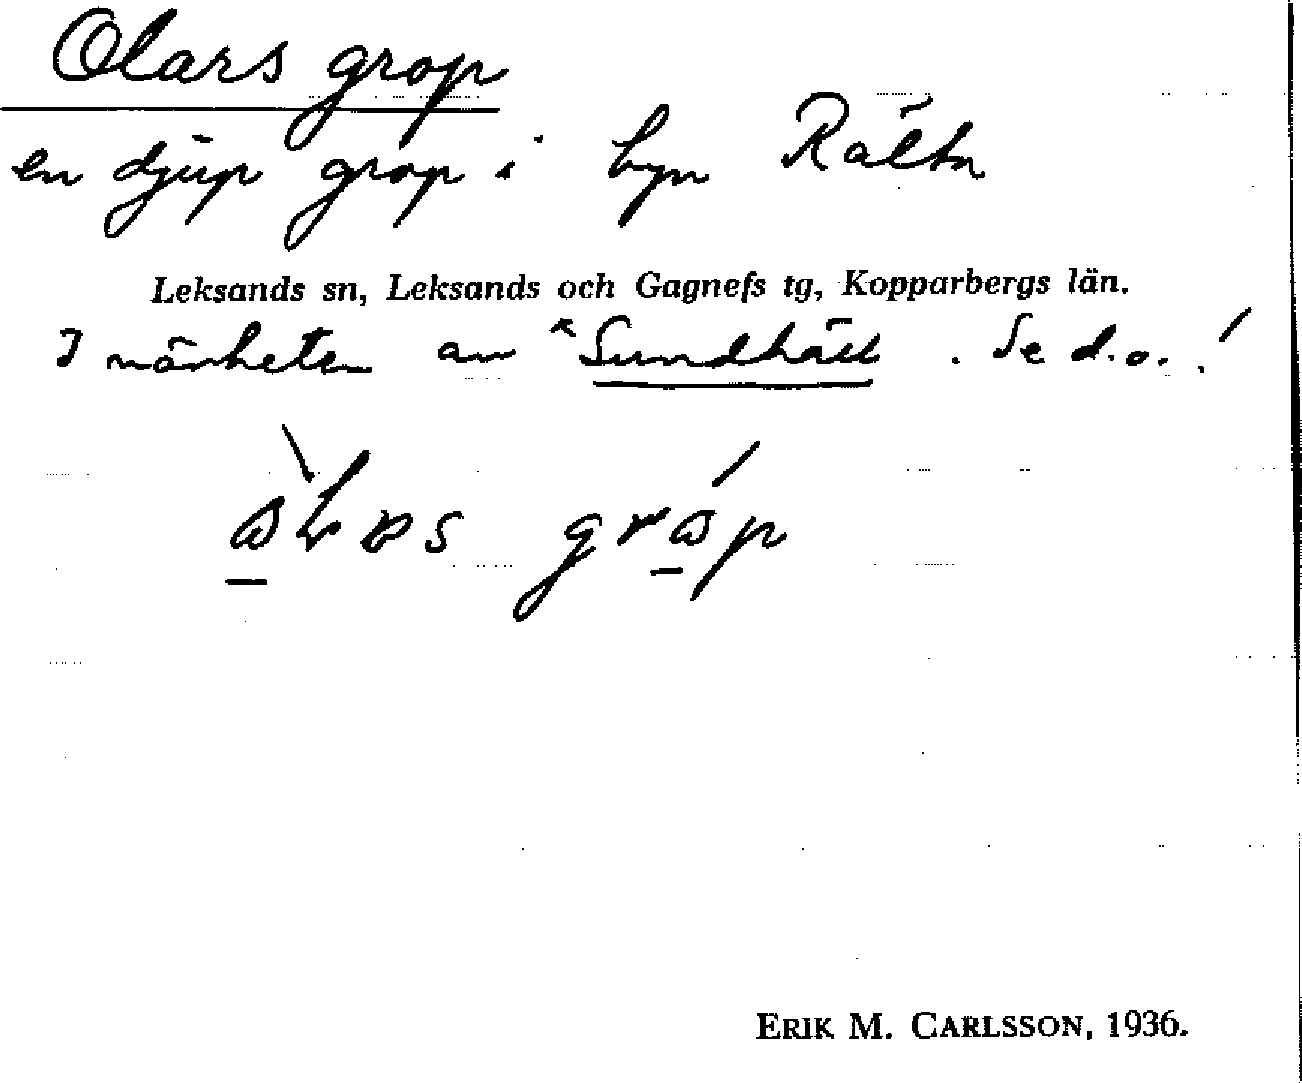 Olars grop
en djup grop i byn Rältn
Leksands sn, Leksands och Gagnefs tg, Kopparbergs län.
I närheten av Sundhäll. Se d.o.!
ERIK M. CARLSSON, 1936.